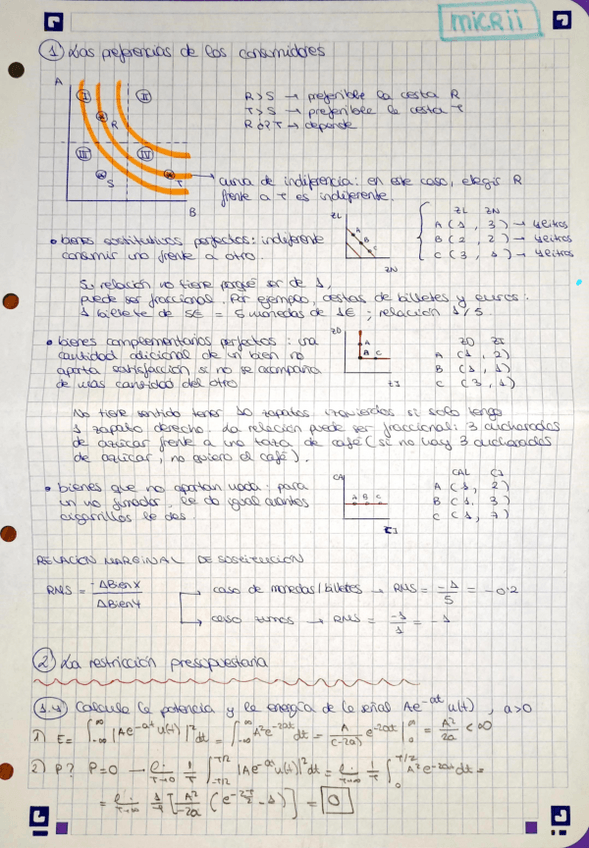 micrii
1 Las preferencias de los consumidores
A
I
II
R
III
IV
S
T
B
R > S → preferible la cesta R
T > S → preferible la cesta T
R o P T → depende
curva de indiferencia: en este caso, elegir R
frente a T es indiferente.
• bienes sustitutivos perfectos: indiferente
consumir uno frente a otro.
ZL
A
B
C
ZN
ZL ZN
A (1, 3) → 4 litros
B (2, 2) → 4 litros
C (3, 1) → 4 litros
Su relación no tiene porqué ser de 1,
puede ser fraccional. Por ejemplo, cestas de billetes y euros.
1 billete de 5€ = 5 monedas de 1€ ; relación 1/5
• bienes complementarios perfectos: una
cantidad adicional de un bien no
aporta satisfacción si no se acompaña
de más cantidad del otro
ZD
A
B C
ZI
ZD ZI
A (1, 2)
B (1, 1)
C (3, 1)
No tiene sentido tener 10 zapatos izquierdos si solo tengo
1 zapato derecho. La relación puede ser fraccional: 3 cucharadas
de azúcar frente a una taza de café (si no hay 3 cucharadas
de azúcar, no quiero el café).
• bienes que no aportan nada: para
un no fumador, le da igual cuantos
cigarrillos le des
CA
A B C
CI
CAL CI
A (1, 2)
B (1, 3)
C (1, 7)
RELACIÓN MARGINAL DE SUSTITUCIÓN
RMS = -ΔBien X / ΔBien Y
caso de monedas/billetes → RMS = -1/5 = -0'2
caso zumos → RMS = -1/1 = -1
2 La restricción presupuestaria
1.4) Calcula la potencia y la energía de la señal Ae^-at u(t), a>0
1) E = ∫_-∞^∞ |Ae^-at u(t)|² dt = ∫_-∞^∞ A² e^-2at dt = A/(-2a) e^-2at |_0^∞ = A²/2a < ∞
2) P? P=0 → l. T→∞ 1/T ∫_-T/2^T/2 |Ae^-at u(t)|² dt = l. T→∞ 1/T ∫_0^T/2 A² e^-2at dt =
= l. T→∞ 1/T [A²/-2a (e^-2T/2 - 1)] = 0